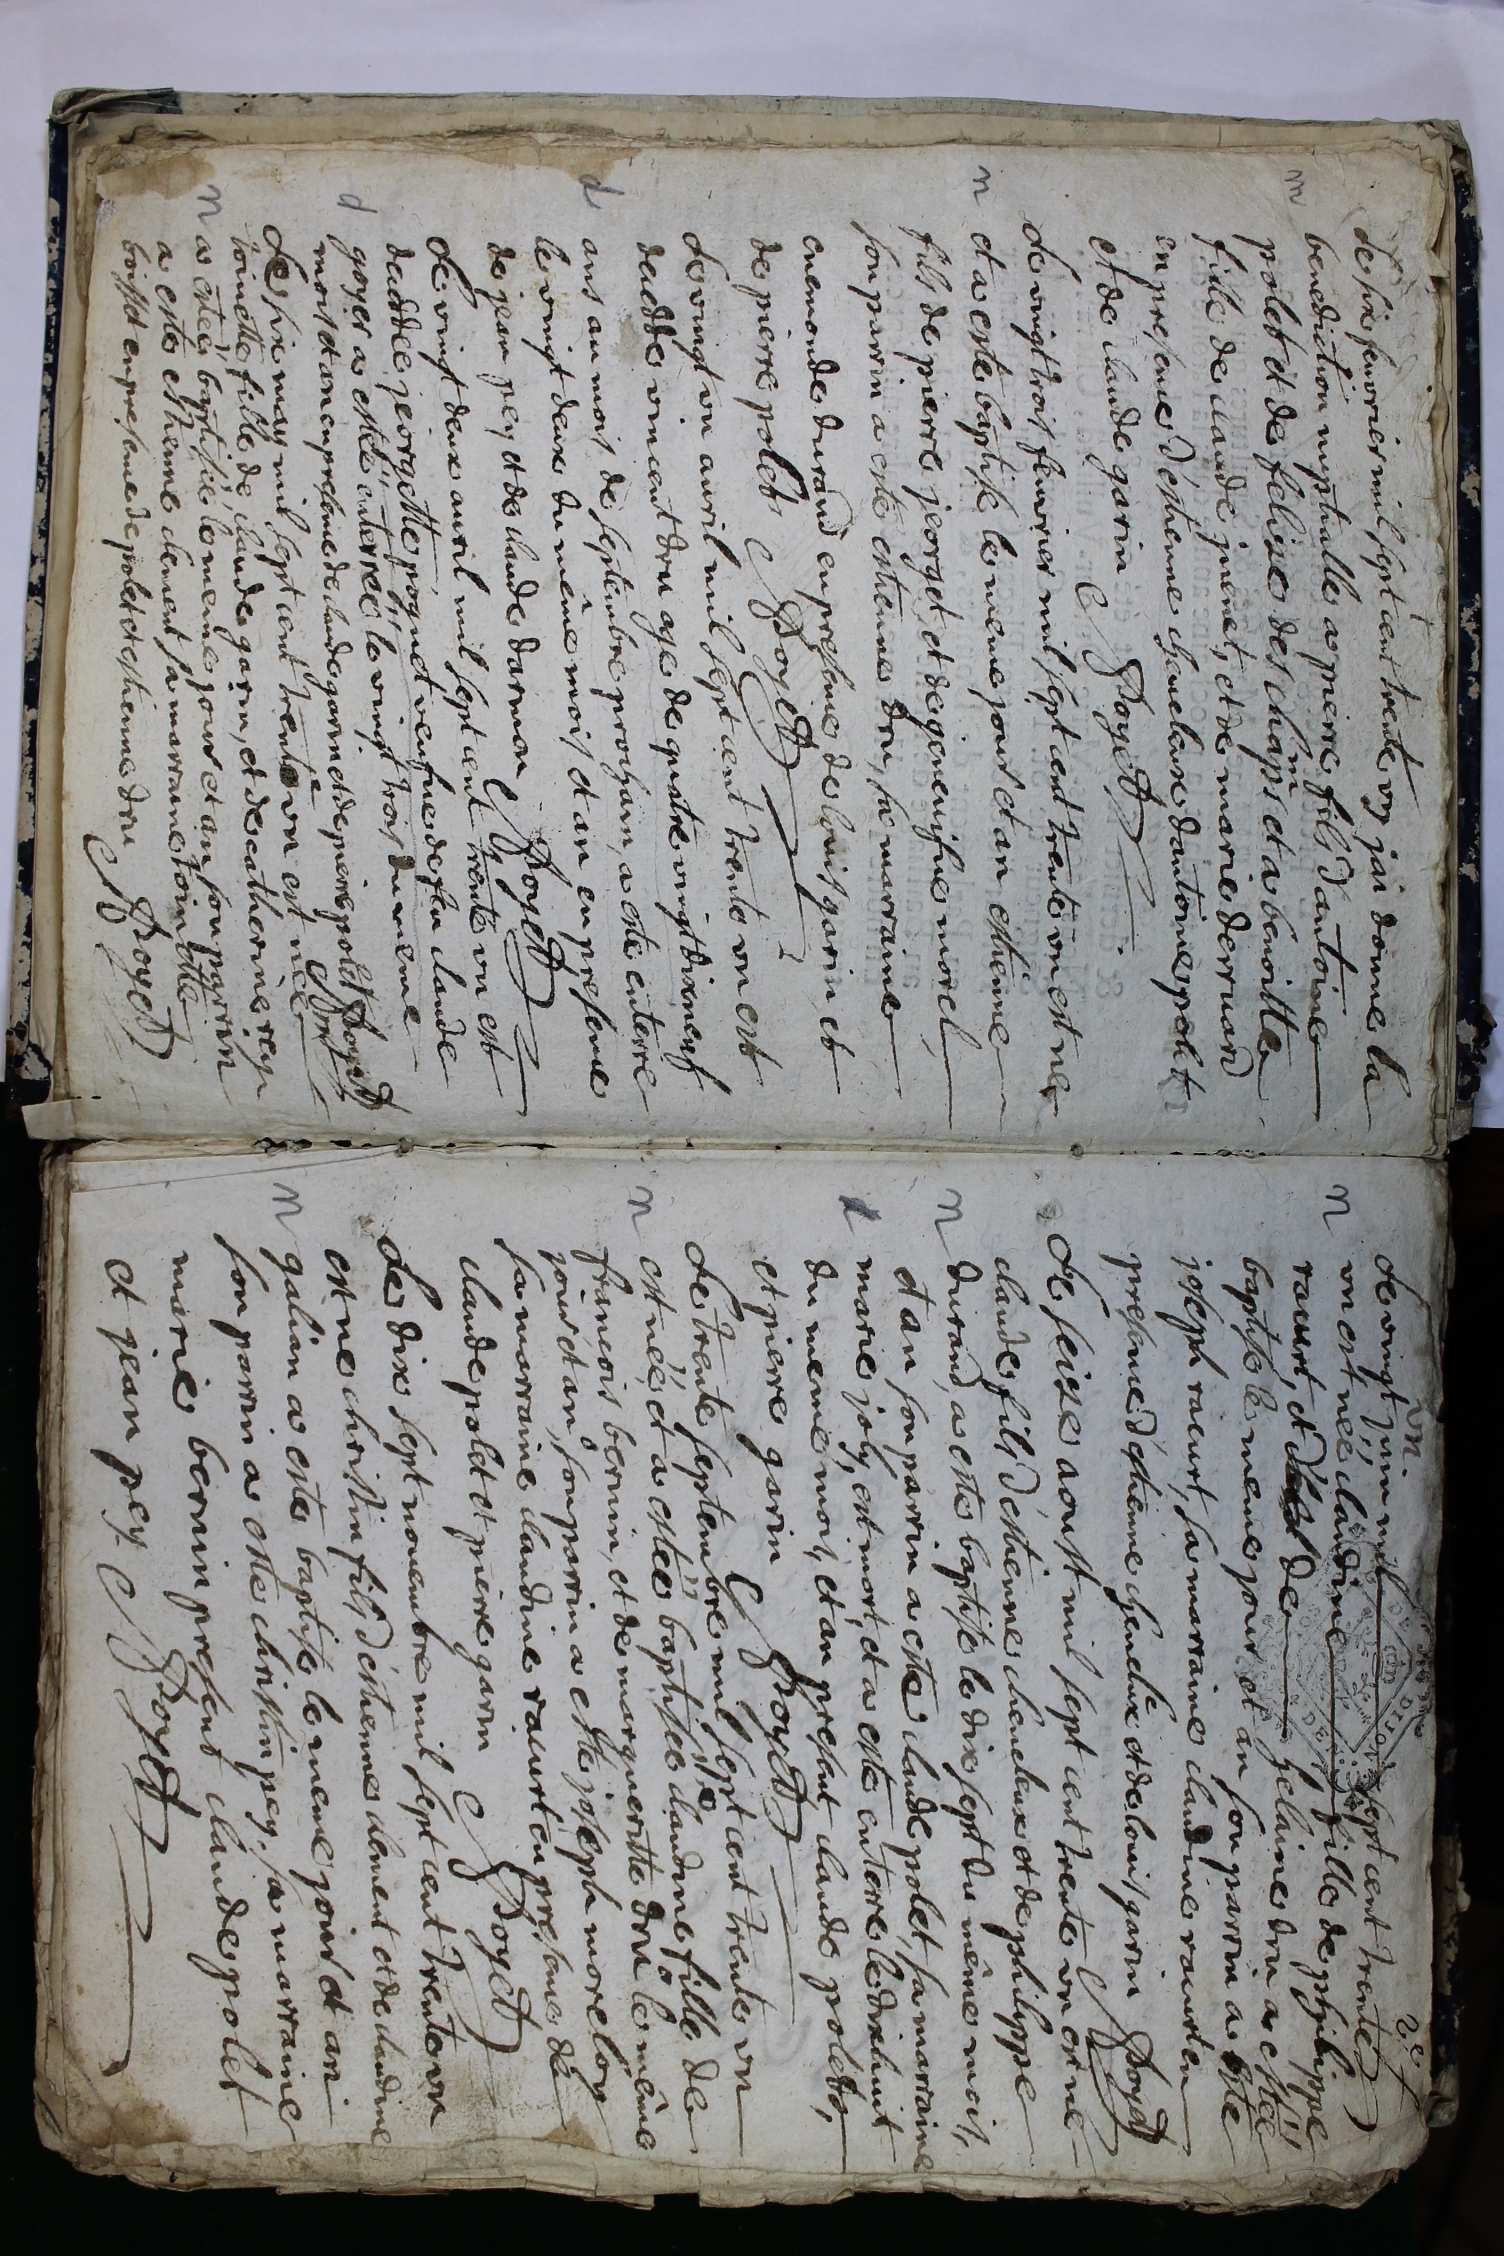 le six fevrier mil sept cent trente vn jai donne la
m
benediction nuptialle a pierre fils d'antoine
polet et de felize deschaps et a benoitte
fille de claude junet, et de marie derruard
en presence d'estienne chencleuse d'antoine polet
et de claude garin Doyet
le vingt trois fevrier mil sept cent trente vn est ne
n
et a este baptise le meme jour et an estienne
fils de pierre jeorget, et de genevisve morel,
son parrin a este estienne dru, sa marraine
enemonde durand en presence de louis garin et
de pierre polet Doyet
le vingt vn avril mil sept cent trente vn est
d
decedde vincent dru age de quatre vingt dixneuf
ans au mois de septembre prochain, a este enterre
le vingt deux du même mois et an en presence
de jean pey et de claude darmon Doyet
le vingt deux avril mil sept cent trente vn est
deceddee jeorgette pognet veufue de feu claude
d
goyer a estée enterrée le vingt trois du meme
mois et an en presence de claude garin et de pierre polet Doyet
le six may mil sept cent trente vn est née
toinette fille de claude garin, et de catherine rey
n
a estée baptisée le meme jour et an son parrin
a este estienne clement sa marraine toinette
boisset en presence de polet et estienne dru
Doyet
vn
le vingt juin mil sept cent trente
n
vn est née claudine fille de philippe
racurt, et de helaine dru a estée
baptise le meme jour et an son parrin a este
joseph racurt, sa marraine claudine racurt en
presence d'estienne chencleux et de louis garin Doyet
le seize aoust mil sept cent trente vn est ne
claude fils d'estienne chencleux et de philippe
n
durand, a este baptise le dix sept du même mois,
et an son parrin a este claude polet, sa marraine
d
marie joly, est mort, et a este enterre le dixhuit
du meme mois, et an present claude polet,
et pierre garin Doyet
le trente septembre mil sept cent trente vn
n
est née, et a estée baptisée claudine fille de
francois bernin, et de margueritte dru le même
jour et an, son parrin a este joseph morel
sa marraine claudine racurt en presence de
claude polet et pierre garin Doyet
le dix sept novembre mil sept cent trente vn
est ne christin fils d'estienne clement et de claudine
n
galian a este baptise le meme jour et an
son parrin a este christin pey. sa marraine
marie bernin present claude polet
et jean pey. Doyet